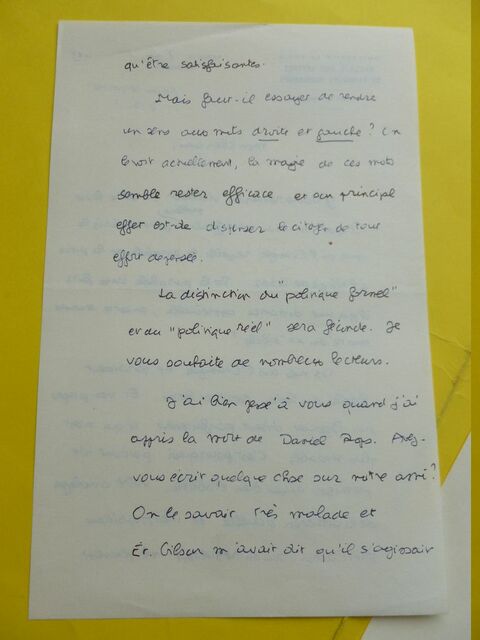 qu'être satisfaisantes.
Mais faut-il essayer de rendre
un sens aux mots droite et gauche ? On
le voit actuellement, la magie de ces mots
semble rester efficace et son principal
effet est de dispenser le citoyen de tout
effort de pensée.
La distinction du "politique formel"
et du "politique réel" sera féconde. Je
vous souhaite de nombreux lecteurs.
J'ai bien pensé à vous quand j'ai
appris la mort de Daniel Rops. Avez-
vous écrit quelque chose sur notre ami ?
On le savait très malade et
Ét. Gilson m'avait dit qu'il s'agissait